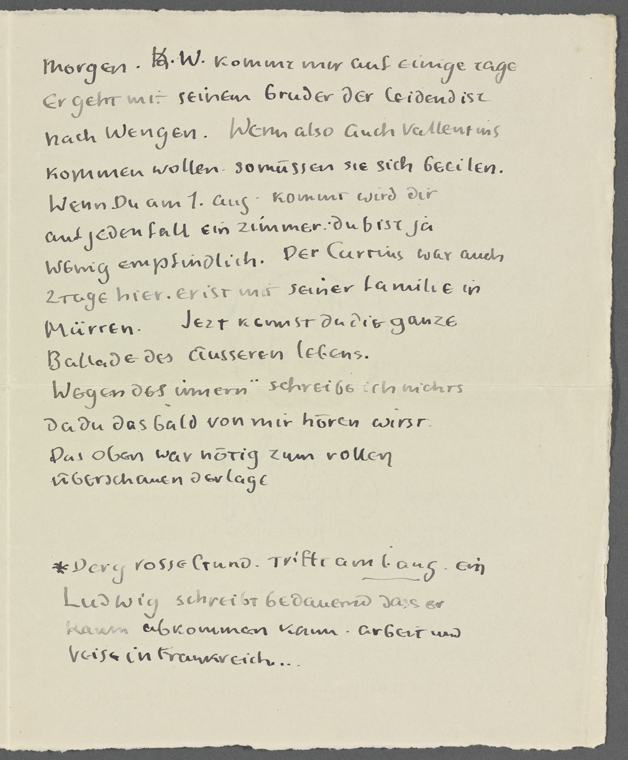 morgen. K.W. kommt nur auf einige tage
Er geht mit seinem Bruder der leidend ist
nach Wengen. Wenn also auch Vallentins
kommen wollen so müssen sie sich beeilen.
Wenn Du am 1. aug. kommst wird dir
auf jeden fall ein zimmer. du bist ja
wenig empfindlich. Der Curtius war auch
2 tage hier. er ist mit seiner familie in
Mürren. Jezt kennst du die ganze
Ballade des äusseren lebens.
Wegen des innern" schreibe ich nichts
da du das bald von mir hören wirst.
Das oben war nötig zum vollen
überschauen der lage
*Der grosse Gund. trifft am 1 aug. ein
Ludwig schreibt bedauernd dass er
kaum abkommen kann. arbeit und
Reise in Frankreich...